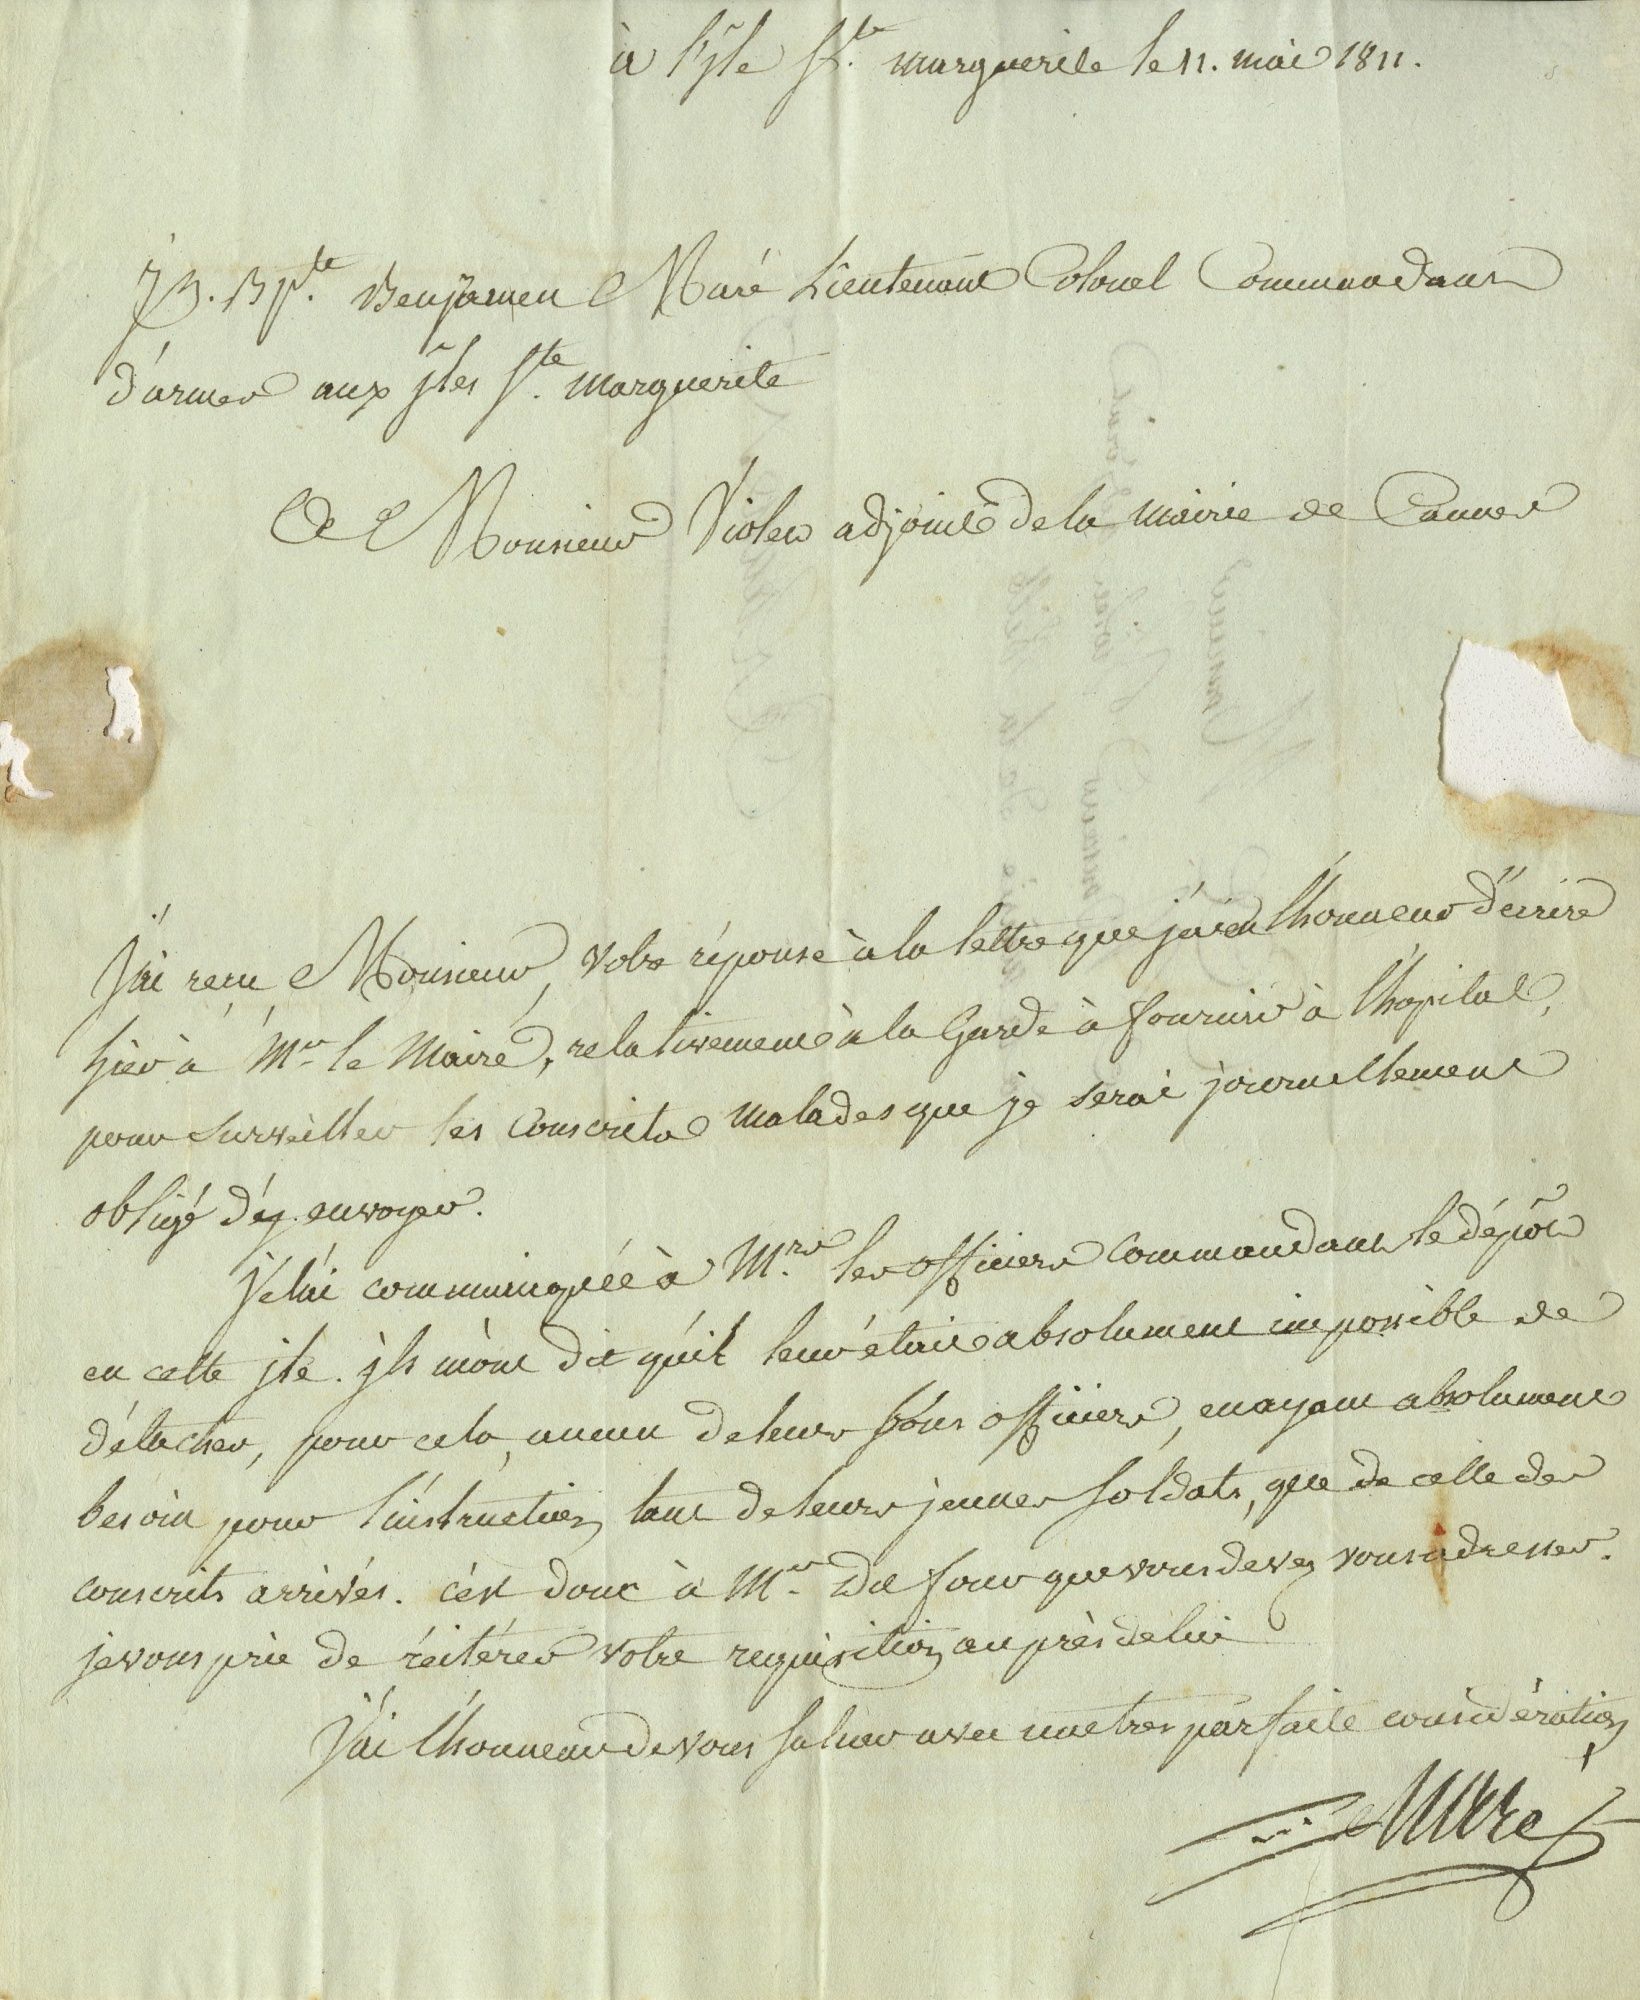 à l'jle Ste. marguerite le 11. mai 1811.
Jn. Bpte. Benjamin Maré Lieutenant Colonel Commandant
d'armes aux jles Ste. marguerite
à Monsieur Violen adjoint de la Mairie de Cannes
J'ai reçu Monsieur, votre réponse à la lettre que j'ai eu l'honneur d'écrire
hier à Mr. le Maire, relativement à la Garde à fournir à l'hopital,
pour surveiller les Conscrits malades que je serai journellement
obligé d'y envoyer.
Je l'ai communiquée à Mrs. les officiers commandant le dépôt
en cette jle. jls m'ont dit qu'il leur étaie absolument impossible de
détacher, pour cela, aucun de leurs sous officiers, en ayant absolument
besoin pour l'instruction tant de leurs jeunes soldats, que de celle des
conscrits arrivés. c'est donc à Mr. Du four que vous devez vous adresser.
je vous prie de réitérer votre requisition auprès de lui
J'ai l'honneur de vous saluer avec une tres parfaite considération
Maré